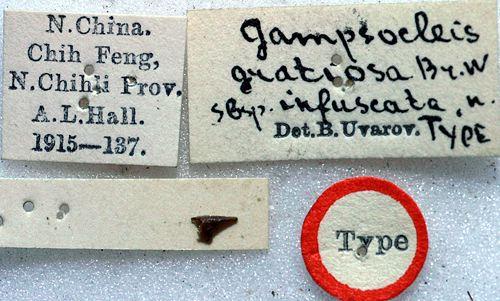 N. China.
Chih Feng,
N. Chihli Prov.
A. L. Hall.
1915—137.
Gampsocleis
gratiosa Br. W
sbsp. infuscata, n.
Det. B. Uvarov. TYPE
Type